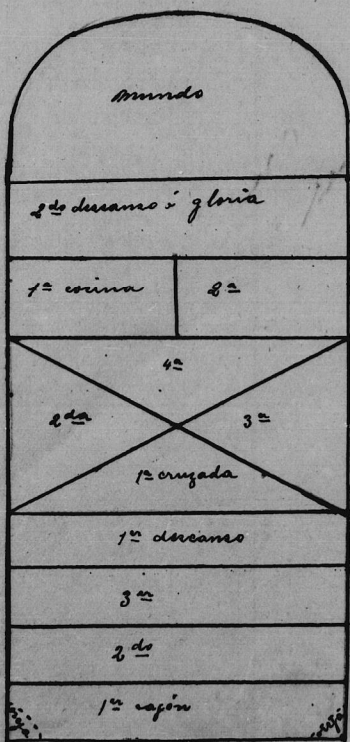 mundo
2do descanso ó gloria
1ª cocina 2ª
4ª
2da 3ª
1ª cruzada
1er descanso
3er
2do
1er cajón